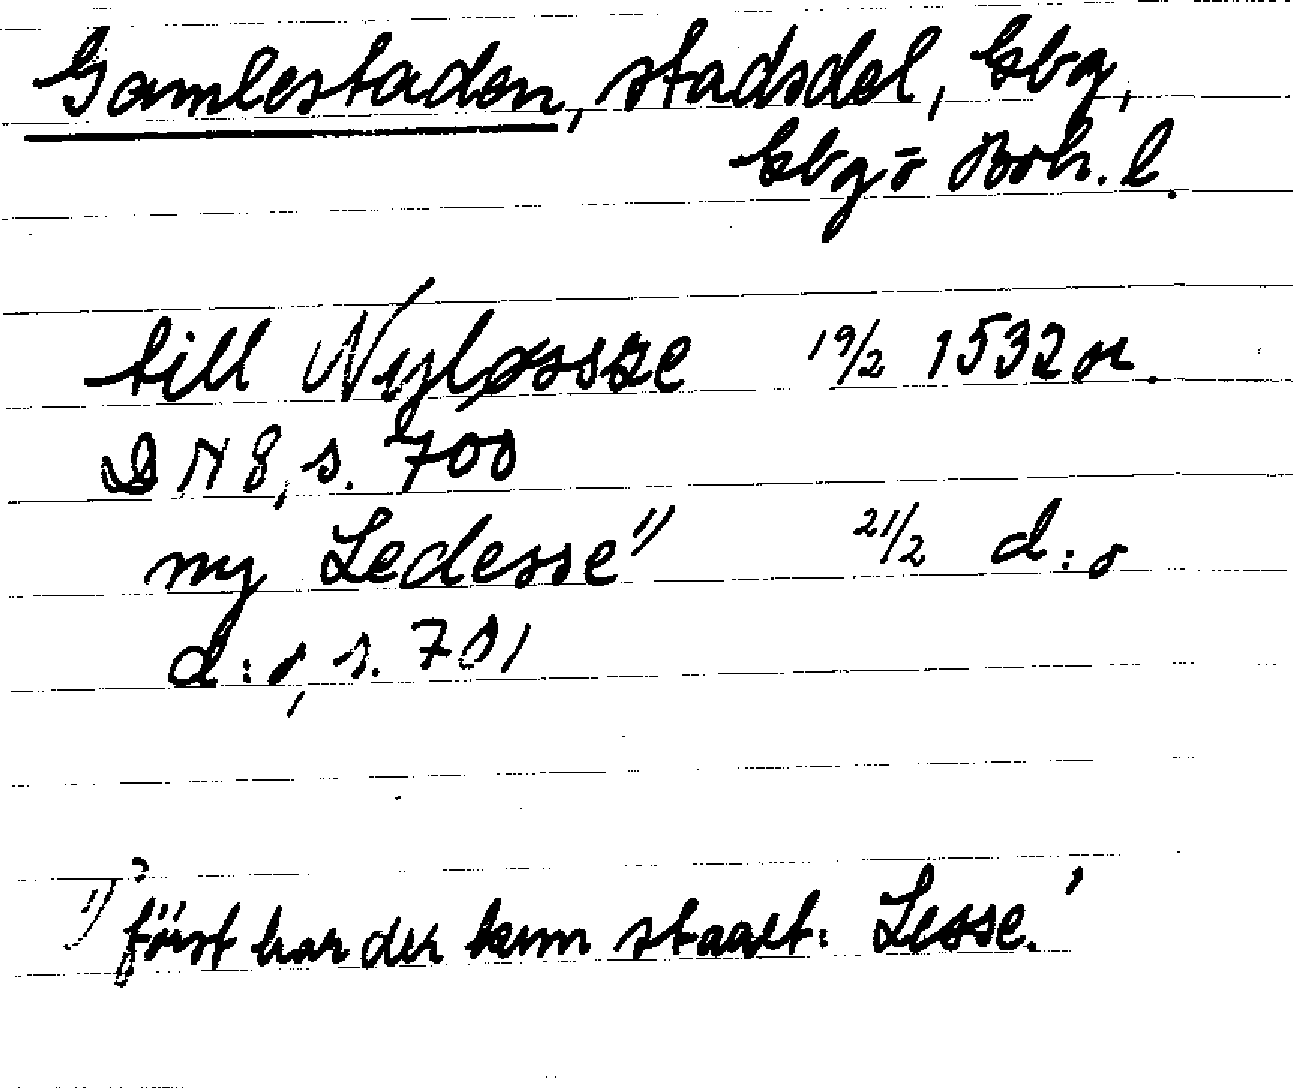 Gamlestaden, stadsdel, Gbg,
Gbg o Boh. l.
till Nyløssze 19/2 1532 or.
DN 8, s. 700
ny Ledesse 1) 21/2 d:o
d:o, s. 701
1) ’först har der kun staaet: Lesse.’